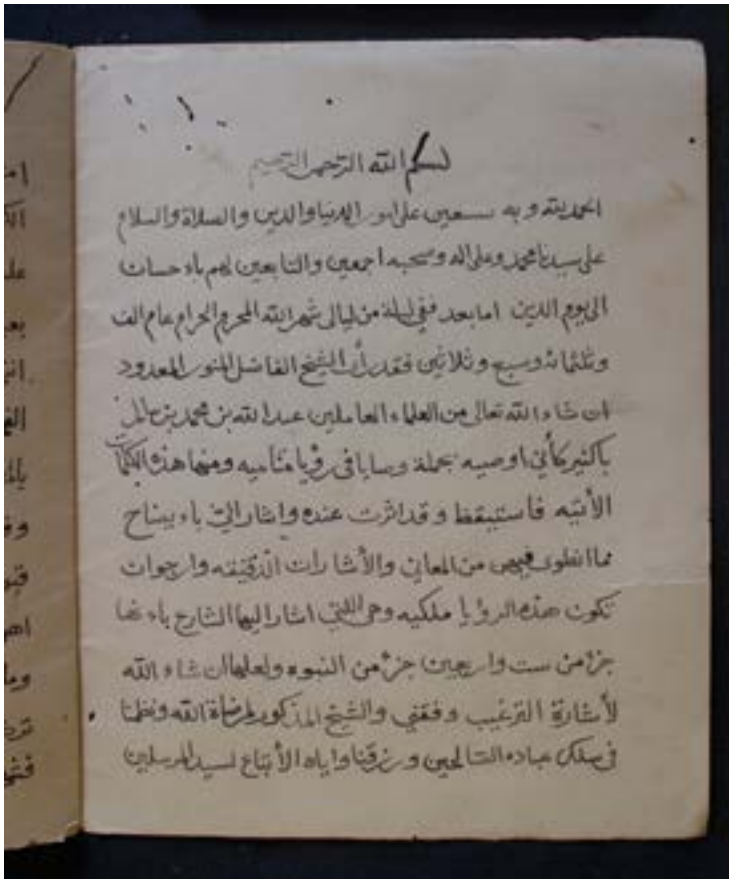 بسم الله الرحمن الرحيم
الحمد لله وبه نستعين على امور الدنيا والدين والصلاة والسلام
على سيدنا محمد وعلى اله وصحبه اجمعين والتابعين لهم باءحسان
الى يوم الدين اما بعد ففي ليلة من ليالى شهر الله المحرم الحرام عام الف
وثلثمائه وسبع وثلاثين فقد رأى الشيخ الفاضل المنور المعدود
ان شاء الله تعالى من العلماء العاملين عبدالله بن محمد بن سالم
باكثير كأني اوصيه بجملة وصايا فى رؤيا مناميه ومنها هذه الكلمات
الأتيه فاستيقظ وقد اثرت عنده واشار اليّ باءيضاح
مما انطوى فيهن من المعاني والأشارات الدقيقه وارجوان
تكون هذه الرؤيا ملكيه وهى اللتي اشار اليها الشارع باءنها
جزء من ست واربعين جزء من النبوه ولعلها ان شاء الله
لأشارة الترغيب وفقني والشيخ المذكور لمرضاة الله ونظمنا
فى سلك عباده الصالحين ورزقنا واياه الأتباع لسيد المرسلين
امن
الك
علـ
بعـ
انـ
الفـ
وفـ
قبـ
اهـ
وما
ترضـ
فشـ